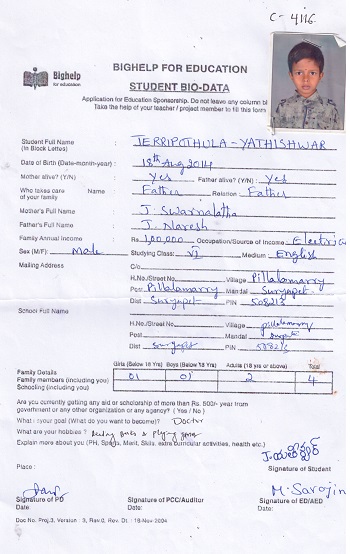 C - 4116
Bighelp
for education
BIGHELP FOR EDUCATION
STUDENT BIO-DATA
Application for Education Sponsorship. Do not leave any column bl
Take the help of your teacher / project member to fill this form
Student Full Name : JERRIPOTHULA - YATHISHWAR
(In Block Letters)
Date of Birth (Date-month-year) : 18th Aug 2014
Mother alive? (Y/N) : Yes Father alive? (Y/N) : Yes
Who takes care Name : Father Relation : Father
of your family
Mother's Full Name : J. Swarnalatha
Father's Full Name : J. Naresh
Family Annual Income : Rs 1,00,000 Occupation/Source of Income : Electric
Sex (M/F) : Male Studying Class : VI Medium : English
Mailing Address C/o
H.No./Street No Village Pillalamarry
Post Pillalamarry Mandal Suryapet
Dist Suryapet PIN 508213
School Full Name :
H.No./Street No Village pillalamarry
Post Mandal
Dist Suryapet PIN 508213
Girls (Below 18 Yrs) Boys (Below 18 Yrs) Adults (18 yrs or above) Total
Family Details
Family members (including you) 01 01 2 4
Schooling (including you)
Are you currently getting any aid or scholarship of more than Rs. 500/- year from
government or any other organization or any agency? ( Yes / No )
What is your goal (What do you want to become)? Doctor
What are your hobbies ? & playing
Explain more about you (PH, Sports, Merit, Skills, extra curricular activities, health etc.)
Place : Signature of Student
M. Sarojin
Signature of PD Signature of PCC/Auditor Signature of ED/AED
Date: Date: Date:
Doc No. Proj.3, Version : 3, Rev.0, Rev. Dt. : 18-Nov-2004